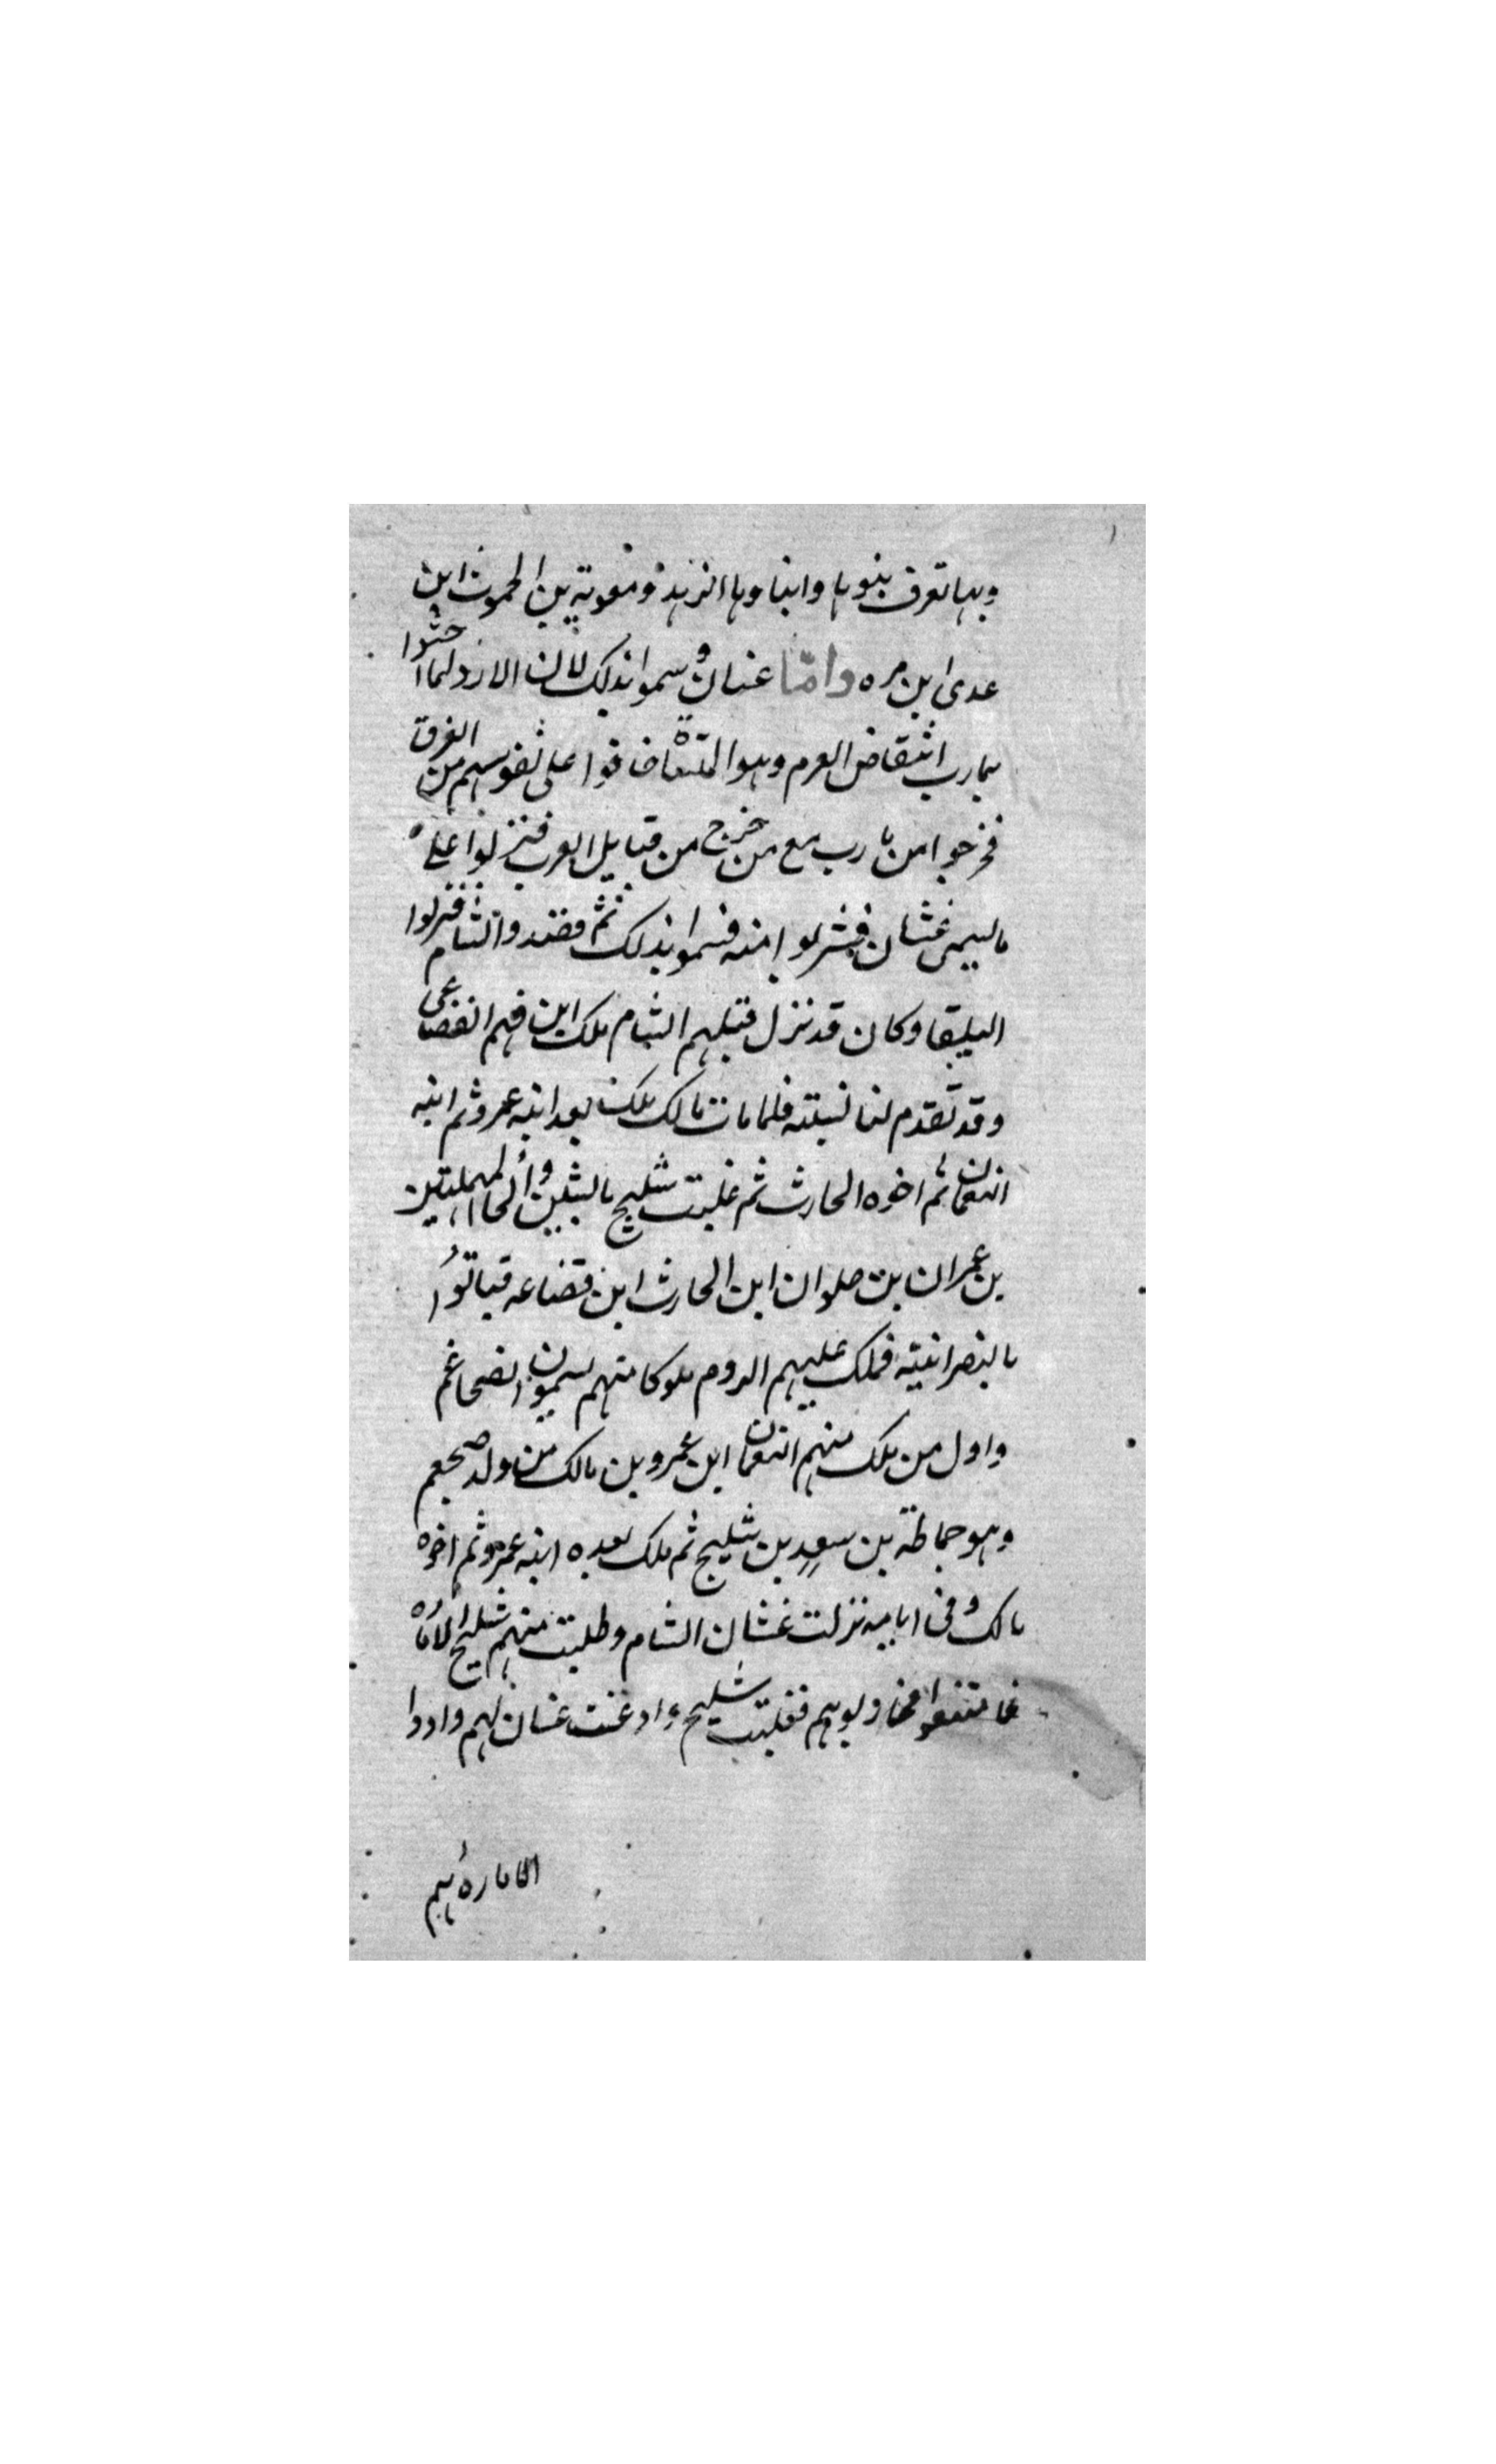 وبها تعرف بنوها وابناوها الزيد ومعوية بن الحموث ابن
عدى ابن مره واما غسان وسموا بذلك لان الازد لما احثوا
بمارب انتقاض العرم وهو المثناة خافوا على نفوسهم من الغرق
فخرجوا من مارب مع من خرج من قبايل العرب فنزلوا على
ما يسمى غشان فشربوا منه فسموا بذلك ثم قصدوا الشام فنزلوا
البلقا وكان قد نزل قبلهم الشام ملك ابن فهم القضاعى
وقد تقدم لنا نسبته فلما مات مالك ملك بعد ابنه عمرو ثم ابنه
النعمان ثم اخوه الحارث ثم غلبت شليح بالشين والحا المهملتين
بن عمران بن حلوان ابن الحارث ابن قضاعه
بالنصرانية فملك عليهم الروم ملوكا منهم يسمون الضجاعم
واول من ملك منهم النعمان ابن عمرو بن مالك من ولد ضجعم
وهو حماطة بن سعد بن شليح ثم ملك بعده ابنه عمرو ثم اخوه
مالك وفى ايامه نزلت غشان الشام وطلبت منهم شليح
فامتنعوا فغلبت شليح وادعنت غسان لهم وادوا
الاماره اليهم